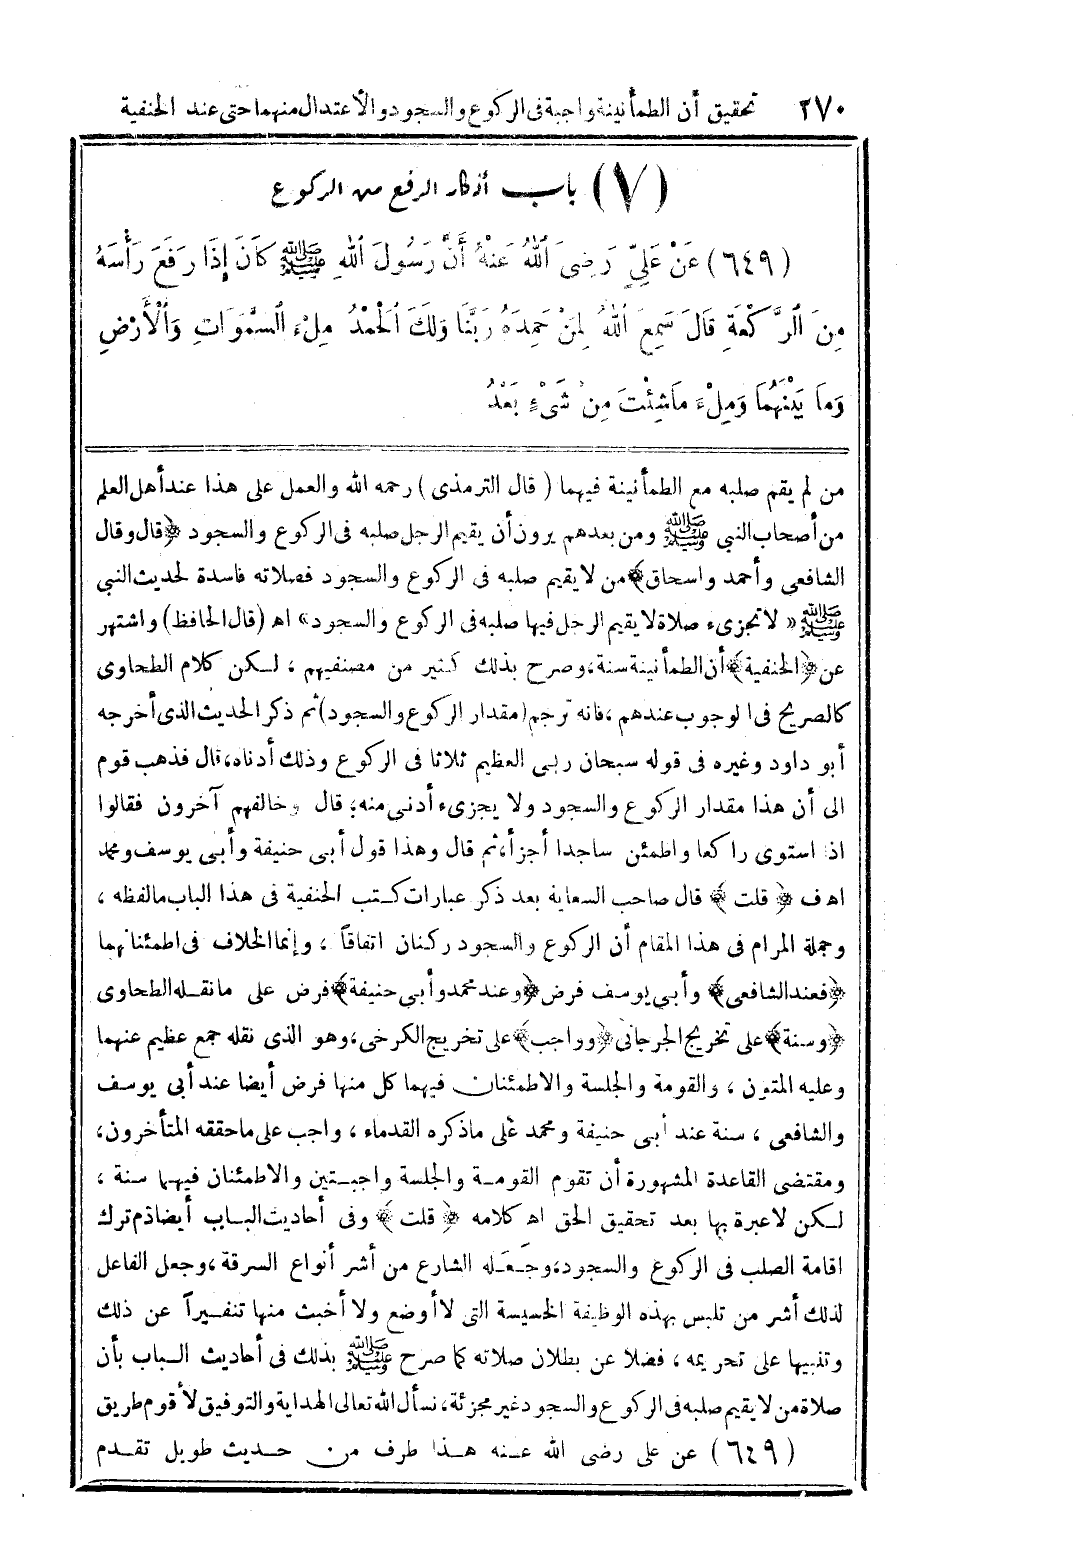 ٢٧٠ تحقيق أن الطمأنينة واجبة فى الركوع والسجود والأعتدال منهما حتى عند الحنفية
(٧) باب أذكار الرفع من الركوع
(٦٤٩) عَنْ عَلِيٍّ رَضِىَ اللهُ عَنْهُ أَنَّ رَسُولَ اللهِ ﷺ كَانَ إِذَا رَفَعَ رَأْسَهُ
مِنَ الرَّكْعَةِ قَالَ سَمِعَ اللهُ لِمَنْ حَمِدَهُ رَبَّنَا وَلَكَ الْحَمْدُ مِلْءَ السَّمٰوَاتِ وَالْأَرْضِ
وَمَا بَيْنَهُمَا وَمِلْءَ مَاشِئْتَ مِنْ شَىْءٍ بَعْدُ
من لم يقم صلبه مع الطمأنينة فيهما ( قال الترمذى ) رحمه الله والعمل على هذا عند أهل العلم
من أصحاب النبى ﷺ ومن بعدهم يرون أن يقيم الرجل صلبه فى الركوع والسجود ﴿قال وقال
الشافعى وأحمد واسحاق﴾ من لا يقيم صلبه فى الركوع والسجود فصلاته فاسدة لحديث النبى
ﷺ « لا تجزىء صلاة لا يقيم الرجل فيها صلبه فى الركوع والسجود» اهـ (قال الحافظ) واشتهر
عن ﴿الحنفية﴾ أن الطمأنينة سنة، وصرح بذلك كثير من مصنفيهم ، لـكن كلام الطحاوى
كالصريح فى الوجوب عندهم ، فانه ترجم (مقدار الركوع والسجود) ثم ذكر الحديث الذى أخرجه
أبو داود وغيره فى قوله سبحان ربى العظيم ثلاثا فى الركوع وذلك أدناه، قال فذهب قوم
الى أن هذا مقدار الركوع والسجود ولا يجزىء أدنى منه، قال وخالفهم آخرون فقالوا
اذا استوى راكعا واطمئن ساجدا أجزأ، ثم قال وهذا قول أبى حنيفة وأبى يوسف ومحمد
اهـ ف ﴿ قلت ﴾ قال صاحب السعاية بعد ذكر عبارات كتب الحنفية فى هذا الباب مالفظه ،
وجملة المرام فى هذا المقام أن الركوع والسجود ركنان اتفاقاً ، وإنما الخلاف فى اطمئنانهما
﴿فعند الشافعى﴾ وأبى يوسف فرض ﴿وعند محمد وأبى حنيفة﴾ فرض على ما نقـله الطحاوى
﴿وسنة﴾ على تخريج الجرجانى ﴿وواجب﴾ على تخريج الكرخى، وهو الذى نقله جمع عظيم عنهما
وعليه المتون ، والقومة والجلسة والاطمئنان فيهما كل منها فرض أيضا عند أبى يوسف
والشافعى ، سنة عند أبى حنيفة ومحمد على ماذكره القدماء ، واجب على ماحققه المتأخرون،
ومقتضى القاعدة المشهورة أن تقوم القومـة والجلسة واجبـتين والاطمئنان فيهما سنة ،
لـكن لا عبرة بها بعد تحقيق الحق اهـ كلامه ﴿ قلت ﴾ وفى أحاديث البـاب أيضا ذم ترك
اقامة الصلب فى الركوع والسجود، وجَـعَـله الشارع من أشر أنواع السرقة ، وجعل الفاعل
لذلك أشر من تلبس بهذه الوظيفة الخسيسة التى لا أوضع ولا أخبث منها تنفـيراً عن ذلك
وتنبيها على تحريمه ، فضلا عن بطلان صلاته كما صرح ﷺ بذلك فى أحاديث الباب بأن
صلاة من لا يقيم صلبه فى الركوع والسجود غير مجزئة، نسأل الله تعالى الهداية والتوفيق لأقوم طريق
(٦٤٩) عن على رضى الله عـنه هـذا طرف من حـديث طويل تقـدم